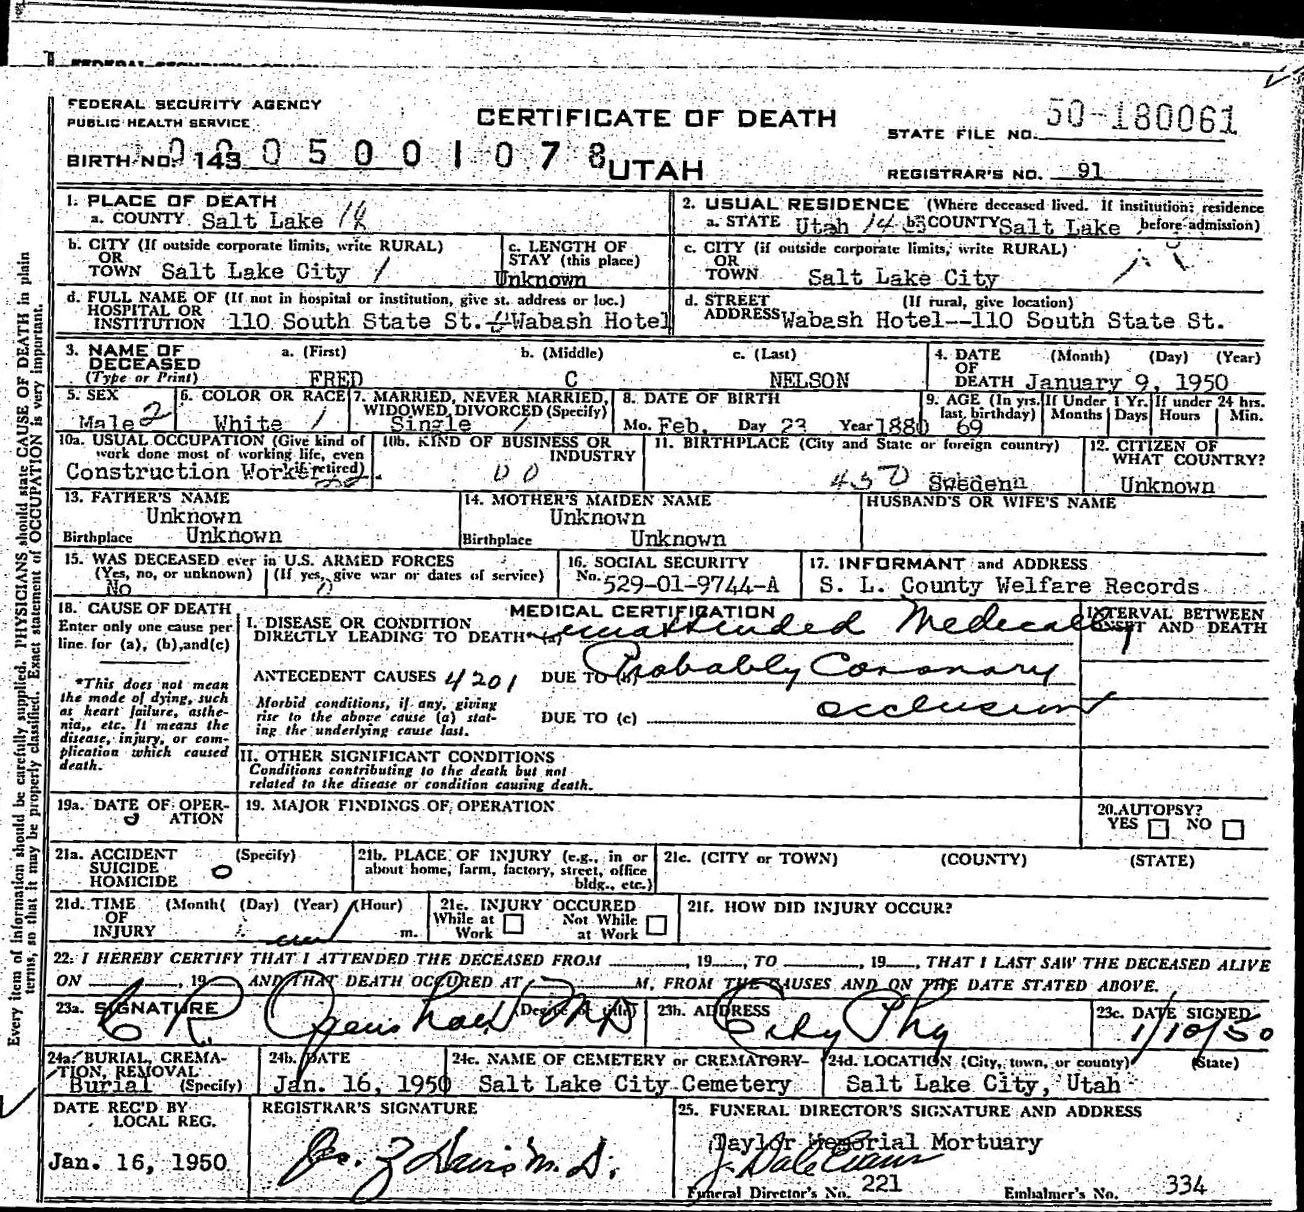 FEDERAL SECURITY AGENCY
PUBLIC HEALTH SERVICE
CERTIFICATE OF DEATH
STATE FILE NO. 50-180061
BIRTH NO. 143 0 0 5 0 0 1 0 7 8
UTAH
REGISTRAR'S NO. 91
1. PLACE OF DEATH
a. COUNTY Salt Lake 18
2. USUAL RESIDENCE (Where deceased lived. If institution: residence before admission)
a. STATE Utah b. COUNTY Salt Lake
b. CITY (If outside corporate limits, write RURAL)
OR
TOWN Salt Lake City 1
c. LENGTH OF
STAY (this place)
Unknown
c. CITY (if outside corporate limits, write RURAL)
OR
TOWN Salt Lake City
d. FULL NAME OF (If not in hospital or institution, give st. address or loc.)
HOSPITAL OR
INSTITUTION 110 South State St. Wabash Hotel
d. STREET (If rural, give location)
ADDRESS Wabash Hotel--110 South State St.
3. NAME OF
DECEASED
(Type or Print)
a. (First) b. (Middle) c. (Last)
FRED C NELSON
4. DATE (Month) (Day) (Year)
OF
DEATH January 9, 1950
5. SEX
Male 2
6. COLOR OR RACE
White 1
7. MARRIED, NEVER MARRIED,
WIDOWED, DIVORCED (Specify)
Single 1
8. DATE OF BIRTH
Mo. Feb. Day 23 Year 1880
9. AGE (In yrs. last birthday) 69
If Under 1 Yr. Months Days
If under 24 hrs. Hours Min.
10a. USUAL OCCUPATION (Give kind of
work done most of working life, even
if retired)
Construction Worker
10b. KIND OF BUSINESS OR
INDUSTRY
00
11. BIRTHPLACE (City and State or foreign country)
Swedenn
12. CITIZEN OF
WHAT COUNTRY?
Unknown
13. FATHER'S NAME
Unknown
Birthplace Unknown
14. MOTHER'S MAIDEN NAME
Unknown
Birthplace Unknown
HUSBAND'S OR WIFE'S NAME
15. WAS DECEASED ever in U.S. ARMED FORCES
(Yes, no, or unknown) (If yes, give war or dates of service)
No
16. SOCIAL SECURITY
No. 529-01-9744-A
17. INFORMANT and ADDRESS
S. L. County Welfare Records
18. CAUSE OF DEATH
Enter only one cause per
line for (a), (b), and (c)
*This does not mean
the mode of dying, such
as heart failure, asthe-
nia,, etc. It means the
disease, injury, or com-
plication which caused
death.
MEDICAL CERTIFICATION
I. DISEASE OR CONDITION
DIRECTLY LEADING TO DEATH* (a) unattended Medically
INTERVAL BETWEEN
ONSET AND DEATH
ANTECEDENT CAUSES 4201 DUE TO (b) Probably Coronary
Morbid conditions, if any, giving
rise to the above cause (a) stat-
ing the underlying cause last.
DUE TO (c) occlusion
II. OTHER SIGNIFICANT CONDITIONS
Conditions contributing to the death but not
related to the disease or condition causing death.
19a. DATE OF OPER-
ATION
19. MAJOR FINDINGS OF OPERATION
20. AUTOPSY?
YES NO
21a. ACCIDENT (Specify)
SUICIDE
HOMICIDE
21b. PLACE OF INJURY (e.g., in or
about home, farm, factory, street, office
bldg., etc.)
21c. (CITY or TOWN) (COUNTY) (STATE)
21d. TIME (Month( (Day) (Year) (Hour)
OF
INJURY m.
21e. INJURY OCCURED
While at Work
Not While at Work
21f. HOW DID INJURY OCCUR?
22. I HEREBY CERTIFY THAT I ATTENDED THE DECEASED FROM , 19 , TO , 19 , THAT I LAST SAW THE DECEASED ALIVE
ON , 19 AND THAT DEATH OCCURED AT M, FROM THE CAUSES AND ON THE DATE STATED ABOVE.
23a. SIGNATURE (Degree or title)
C R Openshaw MD
23b. ADDRESS
City Phy
23c. DATE SIGNED
1/10/50
24a. BURIAL, CREMA-
TION, REMOVAL
Burial (Specify)
24b. DATE
Jan. 16, 1950
24c. NAME OF CEMETERY or CREMATORY
Salt Lake City Cemetery
24d. LOCATION (City, town, or county) (State)
Salt Lake City, Utah
DATE REC'D BY
LOCAL REG.
Jan. 16, 1950
REGISTRAR'S SIGNATURE
25. FUNERAL DIRECTOR'S SIGNATURE AND ADDRESS
Taylor Memorial Mortuary
J. Dale Evans
Funeral Director's No. 221 Embalmer's No. 334
Every item of information should be carefully supplied. PHYSICIANS should state CAUSE OF DEATH in plain
terms, so that it may be properly classified. Exact statement of OCCUPATION is very important.